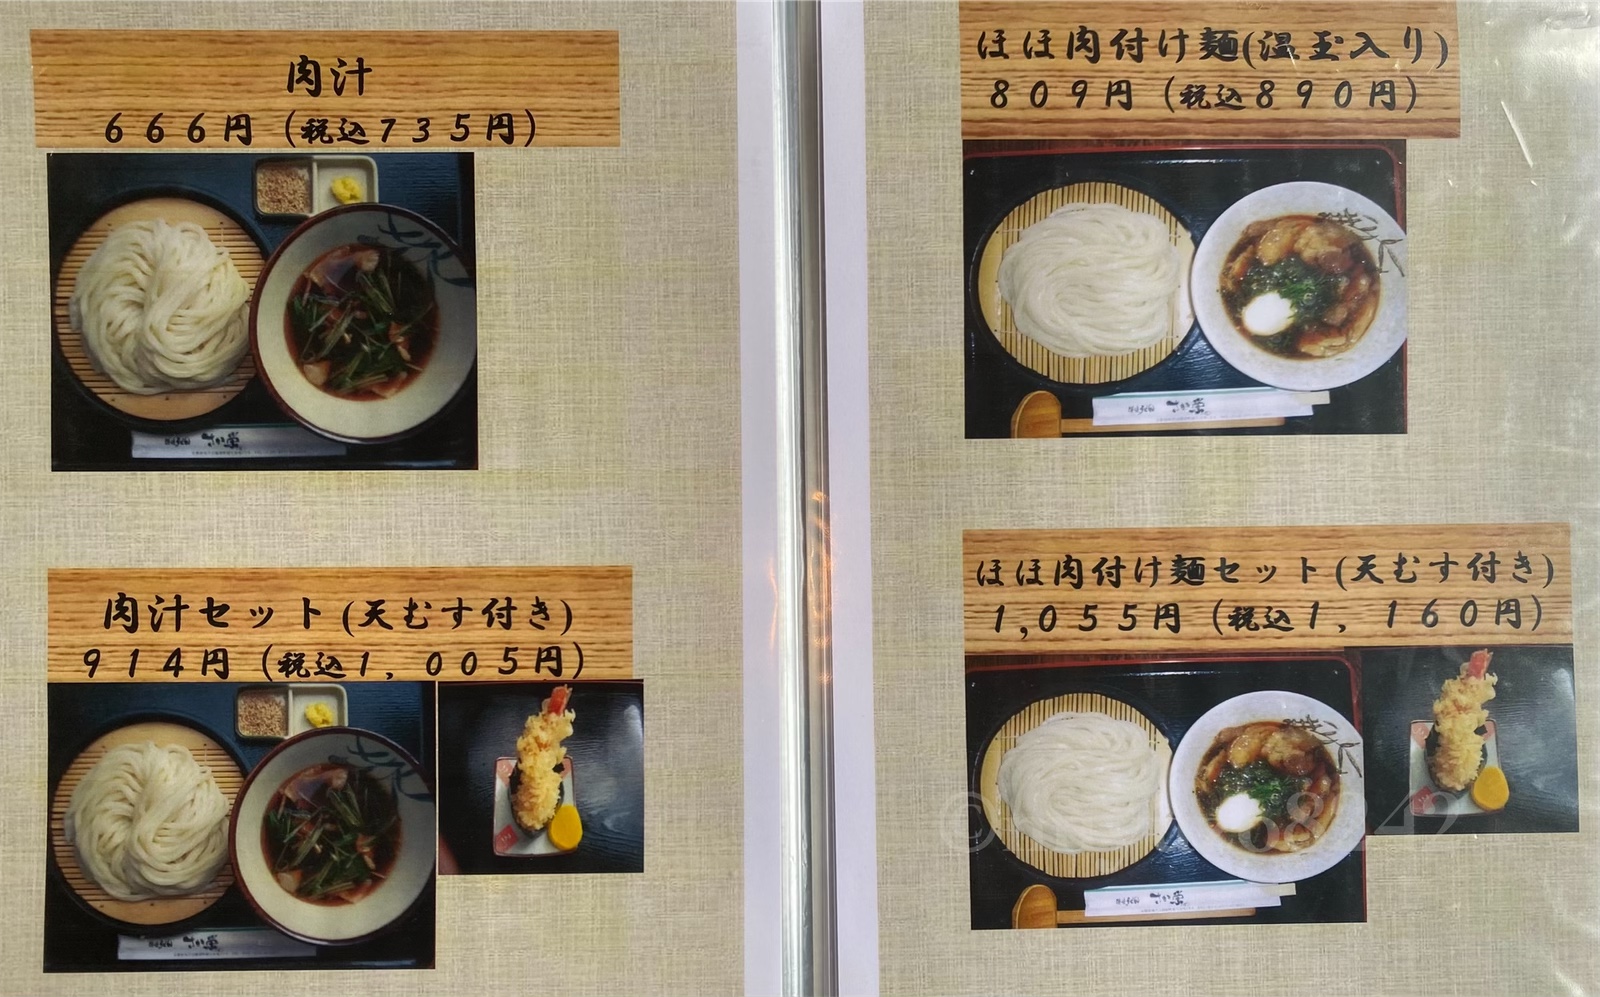 肉汁
６６６円（税込７３５円）
肉汁セット(天むす付き)
９１４円（税込１，００５円）
ほほ肉付け麺(温玉入り)
８０９円（税込８９０円）
ほほ肉付け麺セット(天むす付き)
１,０５５円（税込１，１６０円）